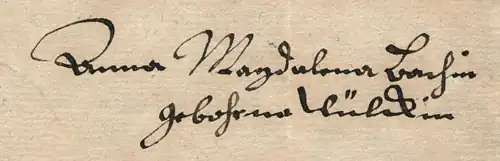 Anna Magdalena Bachin
gebohrne Wülckin